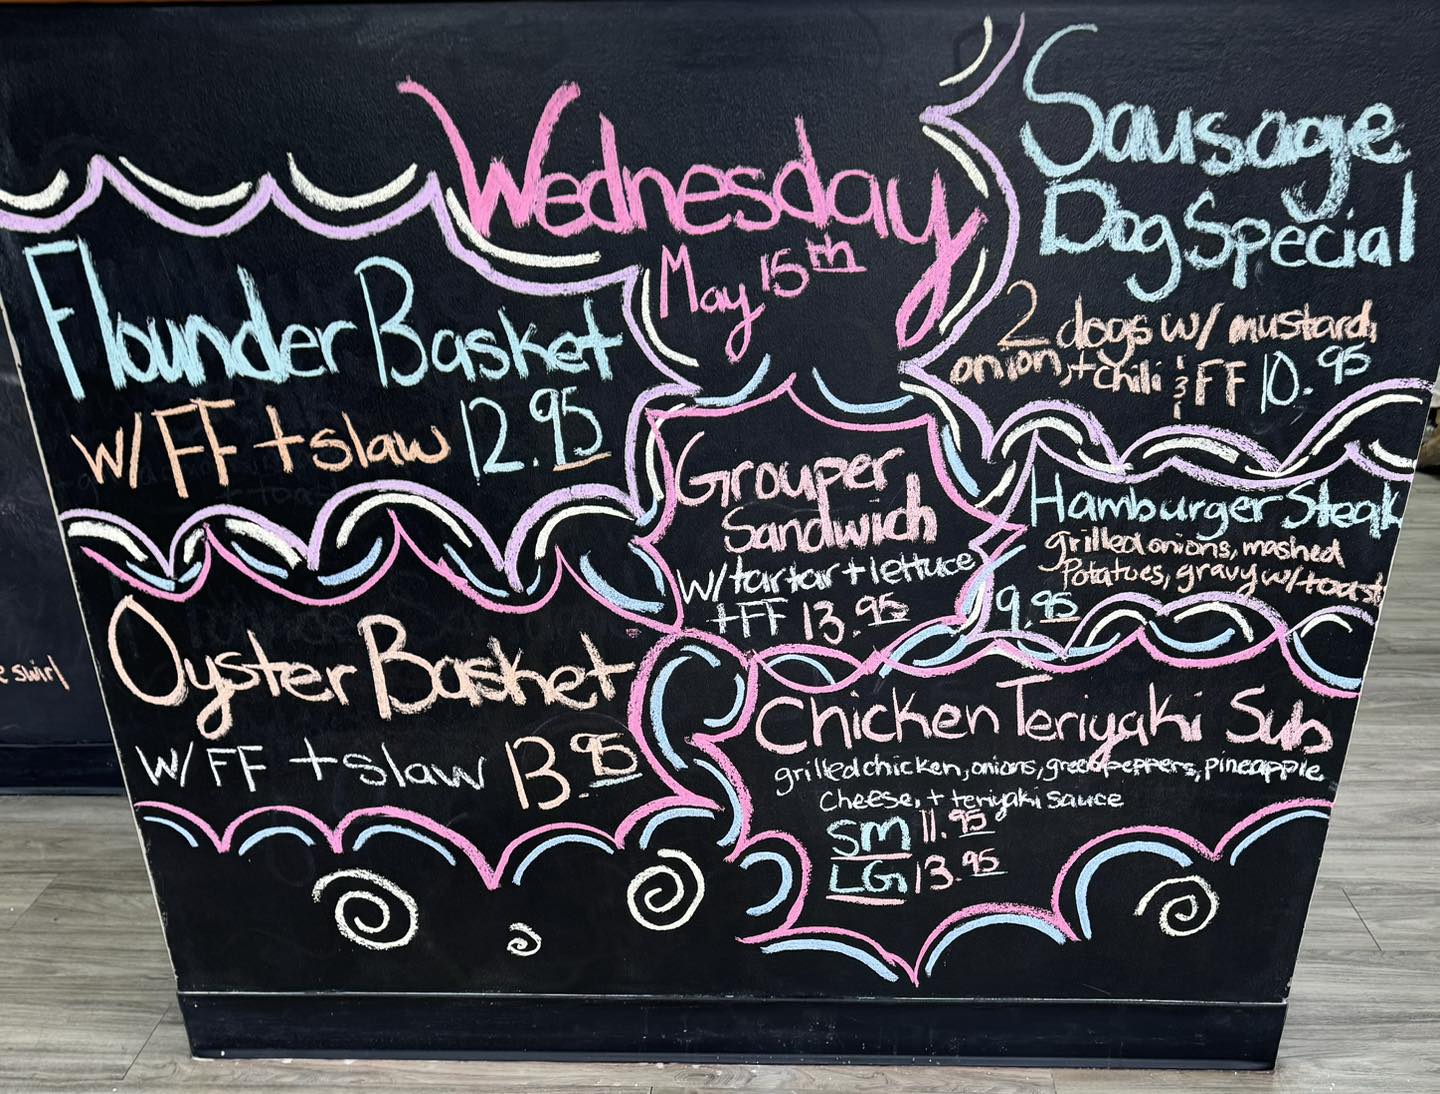 Wednesday
May 15th
Flounder Basket
w/ FF + slaw 12.95
Oyster Basket
w/ FF + slaw 13.95
Grouper
Sandwich
w/ tartar + lettuce
+ FF 13.95
Sausage
Dog Special
2 dogs w/ mustard,
onion, + chili & FF 10.95
Hamburger Steak
grilled onions, mashed
Potatoes, gravy w/ toast
9.95
Chicken Teriyaki Sub
grilled chicken, onions, green peppers, pineapple
cheese, + teriyaki sauce
SM 11.95
LG 13.95
e swirl